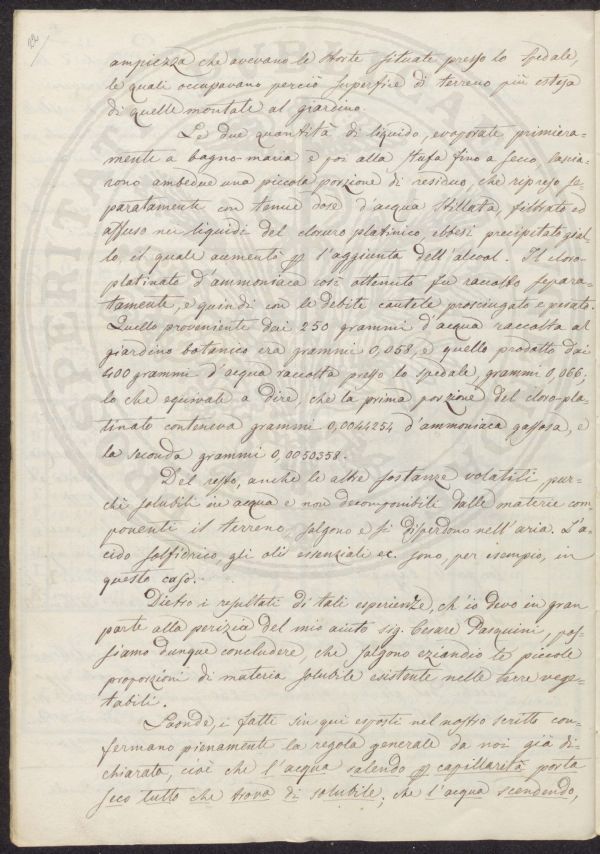 22
ampiezza che avevano le storte situate presso lo spedale,
le quali occupavano perciò superficie di terreno più estesa
di quelle montate al giardino.
Le due quantità di liquido, evaporate primiera-
mente a bagno-maria e poi alla stufa fino a secco, lascia-
rono ambedue una piccola porzione di residuo, che ripreso se-
paratamente con tenue dose d'acqua stillata, filtrato ed
affuso nei liquidi del cloruro platinico, ebbesi precipitato gial-
lo, il quale aumentò p l'aggiunta dell'alcool. Il cloro-
platinato d'ammoniaca così ottenuto fu raccolto separa-
tamente, e quindi con le debite cautele prosciugato e pesato.
Quello proveniente dai 250 grammi d'acqua raccolta al
giardino botanico era grammi 0,058, e quello prodotto dai
400 grammi d'acqua raccolta presso lo spedale, grammi 0,066;
lo che equivale a dire, che la prima porzione del cloro-pla-
tinato conteneva grammi 0,0044254 d'ammoniaca gassosa, e
la seconda grammi 0,0050358.
Del resto, anche le altre sostanze volatili, pur-
chè solubili in acqua e non decomponibili dalle materie com-
ponenti il terreno salgono e si disperdono nell'aria. L'a-
cido solfidrico, gli olii essenziali ec. sono, per esempio, in
questo caso.
Dietro i resultati di tali esperienze, ch'io devo in gran
parte alla perizia del mio aiuto sig. Cesare Pasquini, pos-
siamo dunque concludere, che salgono eziandio le piccole
proporzioni di materia solubile esistente nelle terre vege-
tabili.
Laonde, i fatti sin qui esposti nel nostro scritto con-
fermano pienamente la regola generale da noi già di-
chiarata, cioè che l'acqua salendo p capillarità porta
seco tutto che trova di solubile; che l'acqua scendendo,